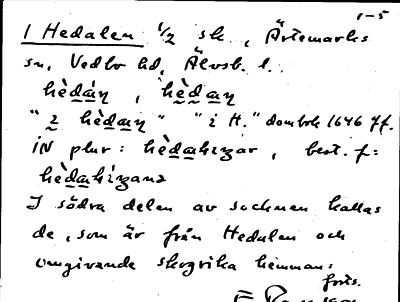 1-5
1 Hedalen 1/2 sk., Ärtemarks
sn, Vedbo hd, Älvsb. l.
hèdán, hèdan
"i hèdan" "i H." dombok 1646 ff.
iN plur: hèdahizar, best. f:
hèdahizana
I södra delen av socknen kallas
de, som är från Hedalen och
omgivande skogrika hemman:
forts.